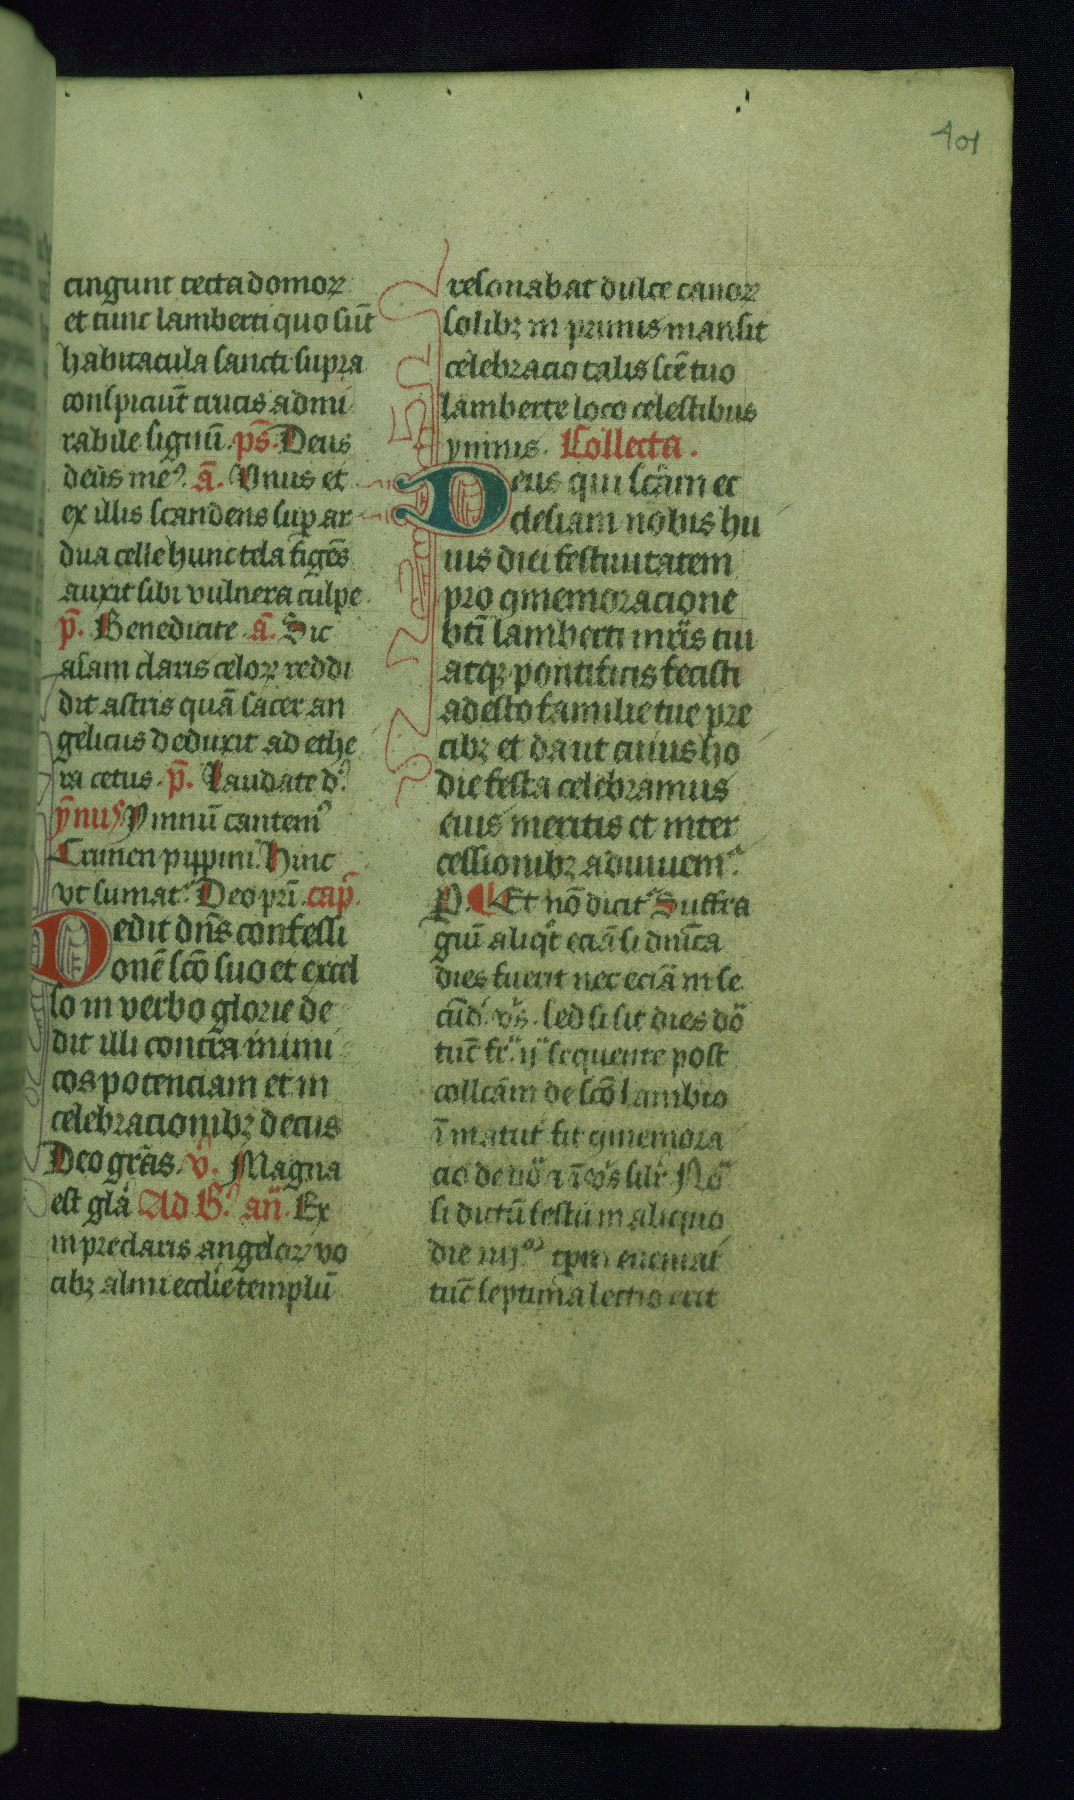 401
cingunt tecta domoꝝ
et tunc lamberti quo siūt
habitacula sancti supra
conspiciūt crucis admi
rabile signū. ps̄. Deus
deus meꝰ. ā. Unus et
ex illis scandens sup ar
dua celle hunc tela figēs
auxit sibi vulnera culpe
p̄. Benedicite. ā. Sic
asam claris celoꝝ reddi
dit astris quā sacer an
gelicus deduxit ad ethe
ra cetus. p̄. Laudate d.
ȳnus Ymnū cantemꝰ
Crimen pippini. Hinc
vt sumat. Deo pri. cap̄.
Dedit dn̄s confessi
onē sc̄o suo et excel
so in verbo glorie de
dit illi contra inimi
cos potenciam et in
celebracionibꝫ decus
Deo grās. v̊. Magna
est gla Ad B. an̄. Ex
in preclaris angeloꝝ vo
cibꝫ almi ecclie templū
resonabat dulce canoꝝ
solibꝫ in primis mansit
celebracio talis scē tuo
lamberte loco celestibus
ymnis. Collecta.
Deus qui scām ec
clesiam nobis hu
ius diei festiuitatem
pro ꝯmemoracione
bti lamberti mr̄is tui
atqꝫ pontificis fecisti
adesto familie tue pre
cibꝫ et da ut cuius ho
die festa celebramus
eius meritis et inter
cessionibꝫ adiuuemꝰ.
P. Et nō dicit Suffra
giū aliqt̊ eciā si dnīca
dies fuerit nec eciā in se
cūd v̄s. sed si sit dies dō
tūc fr̄ ij sequente post
collcām de scō lambto
ī matut fit ꝯmemora
cio de dō ī v̄s silr̄ No
si dictū festū in aliquo
die iiij tpm eueniat
tūc septima lectio erit